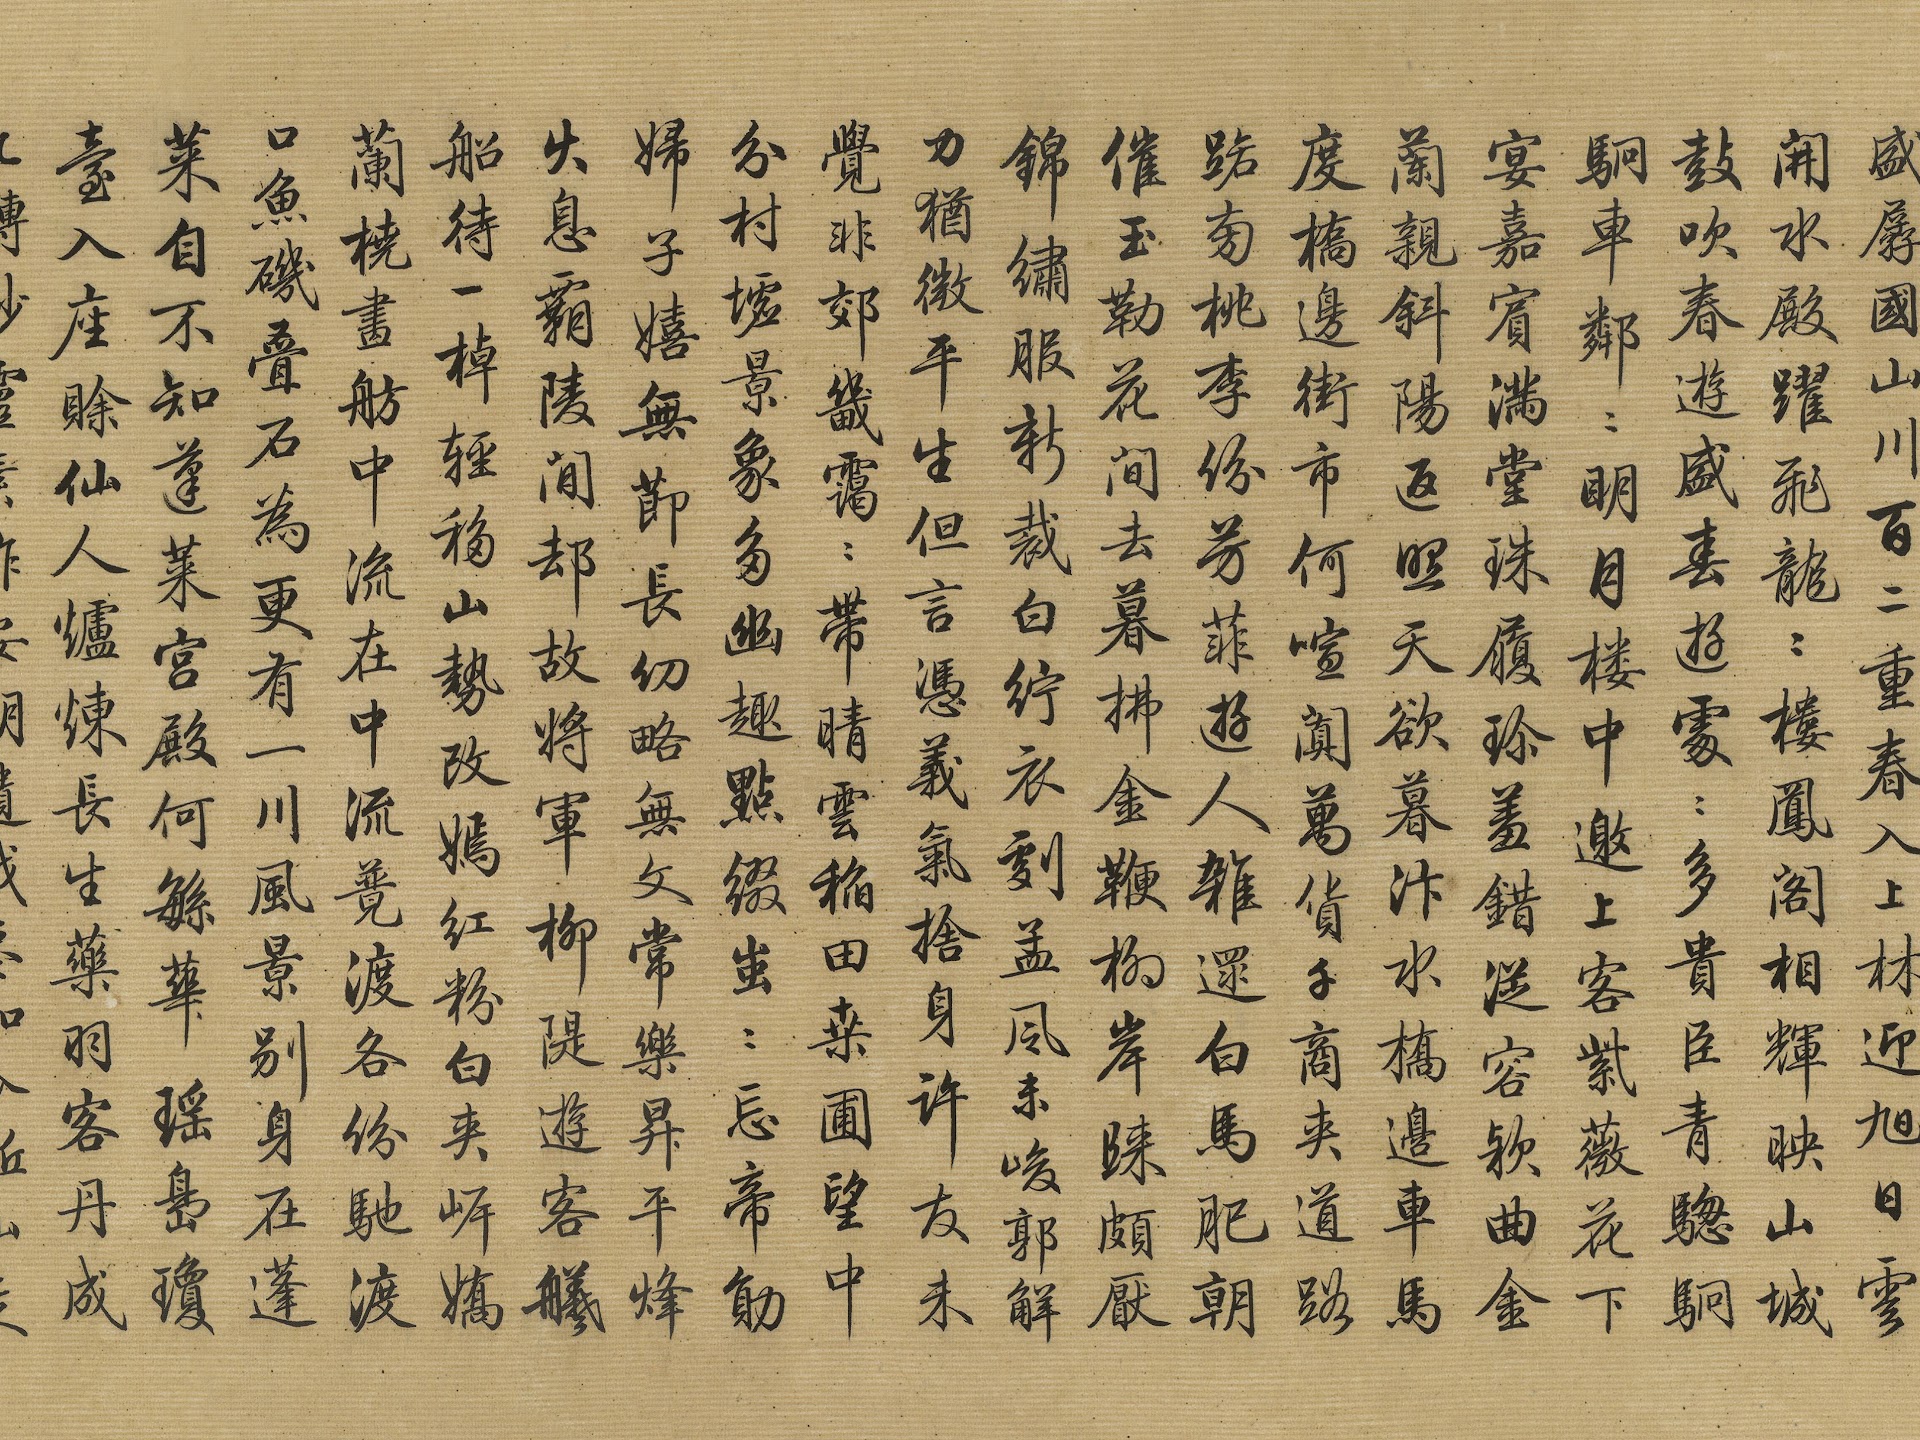 盛孱國山川百二重春入上林迎旭日雲
開水殿躍飛龍〻樓鳳閣相輝映山城
鼓吹春遊盛春遊處〻多貴臣青驄駉
駉車鄰〻明月樓中邀上客紫薇花下
宴嘉賓滿堂珠履珍羞錯從容款曲金
蘭親斜陽返照天欲暮汴水橋邊車馬
度橋邊街市何喧闐萬貨千商夾道路
路旁桃李份芳菲遊人雜還白馬肥朝
催玉勒花間去暮拂金鞭柳岸歸頗厭
錦繡服新裁白紵衣劇孟風未峻郭解
力猶微平生但言憑義氣捨身許友未
覺非郊畿靄〻帶晴雲稻田桒圃望中
分村墟景象多幽趣點綴蚩〻忘帝勛
婦子嬉無節長幼略無文常樂昇平烽
火息霸陵間却故將軍柳隄遊客艤
船待一棹輕移山勢改嫣紅粉白夾岍嬌
蘭橈畫舫中流在中流競渡各份馳渡
口魚磯疊石為更有一川風景別身在蓬
萊自不知蓬萊宮殿何繁華瑤島瓊
臺入座賒仙人爐煉長生藥羽客丹成